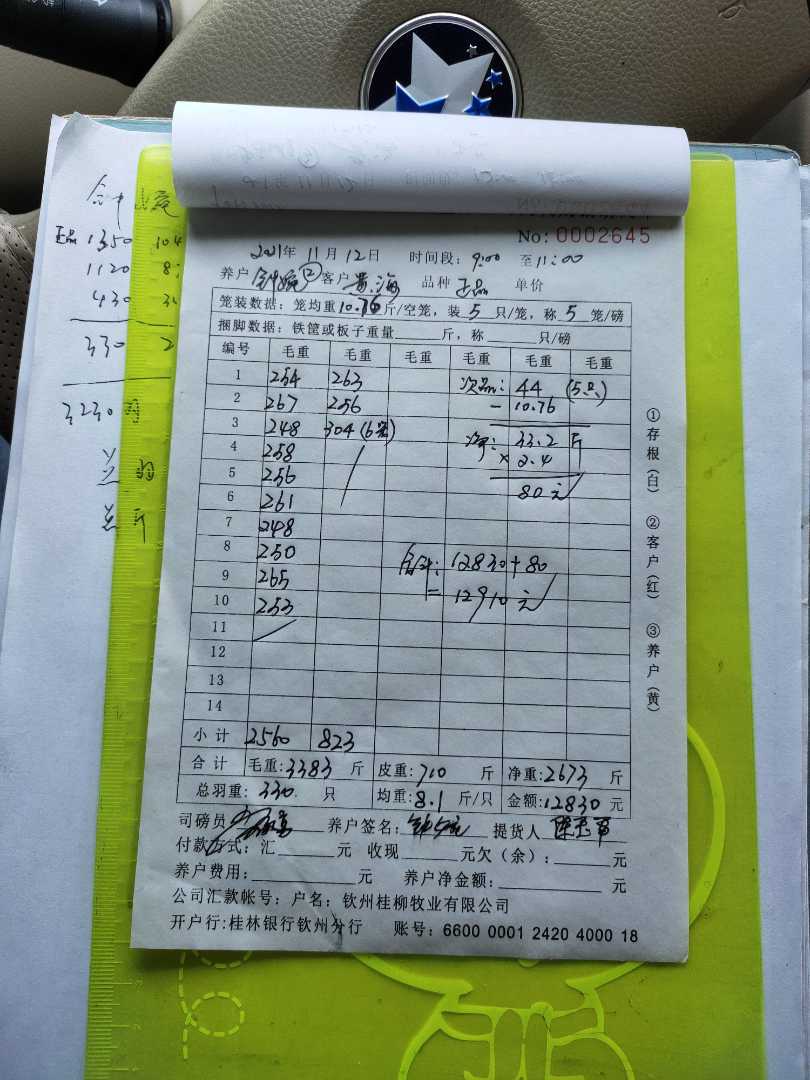 No: 0002645
2021年 11月 12日 时间段: 9:00 至11:00
养户 钟婉② 客户 黄海 品种 正品 单价
笼装数据: 笼均重10.76斤/空笼, 装 5 只/笼, 称 5 笼/磅
捆脚数据: 铁筐或板子重量 斤, 称 只/磅
编号 毛重 毛重 毛重 毛重 毛重 毛重
1 254 263 次品: 44 (5只)
2 267 256 - 10.76
3 248 304 (6笼) 净: 33.2 斤
4 258 × 2.4
5 256 80元
6 261
7 248
8 250 合计: 12830+80
9 265 = 12910元
10 253
11
12
13
14
小计 2560 823
合计 毛重: 3383 斤 皮重: 710 斤 净重: 2673 斤
总羽重: 330 只 均重: 8.1 斤/只 金额: 12830 元
司磅员 养户签名: 提货人
付款方式: 汇 元 收现 元欠(余): 元
养户费用: 元 养户净金额: 元
公司汇款帐号: 户名: 钦州桂柳牧业有限公司
开户行:桂林银行钦州分行 账号: 6600 0001 2420 4000 18
①存根(白) ②客户(红) ③养户(黄)
正品 1350 104
1120
430
330 2
3230羽